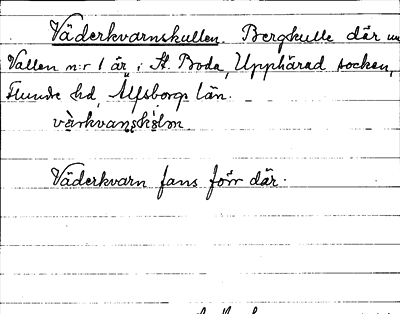 Väderkvarnskullen. Bergkulle där
Vallen n:r 1 är i St. Boda, Upphärad socken,
Flundre hd, Älfsborgs län.
Väderkvarn fans förr där.